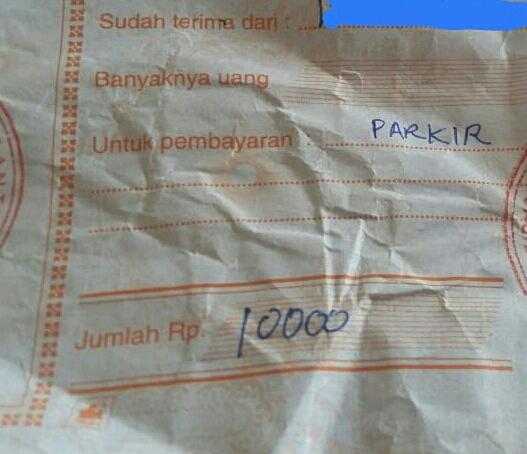 Sudah terima dari :
Banyaknya uang
Untuk pembayaran : PARKIR
Jumlah Rp. 10000